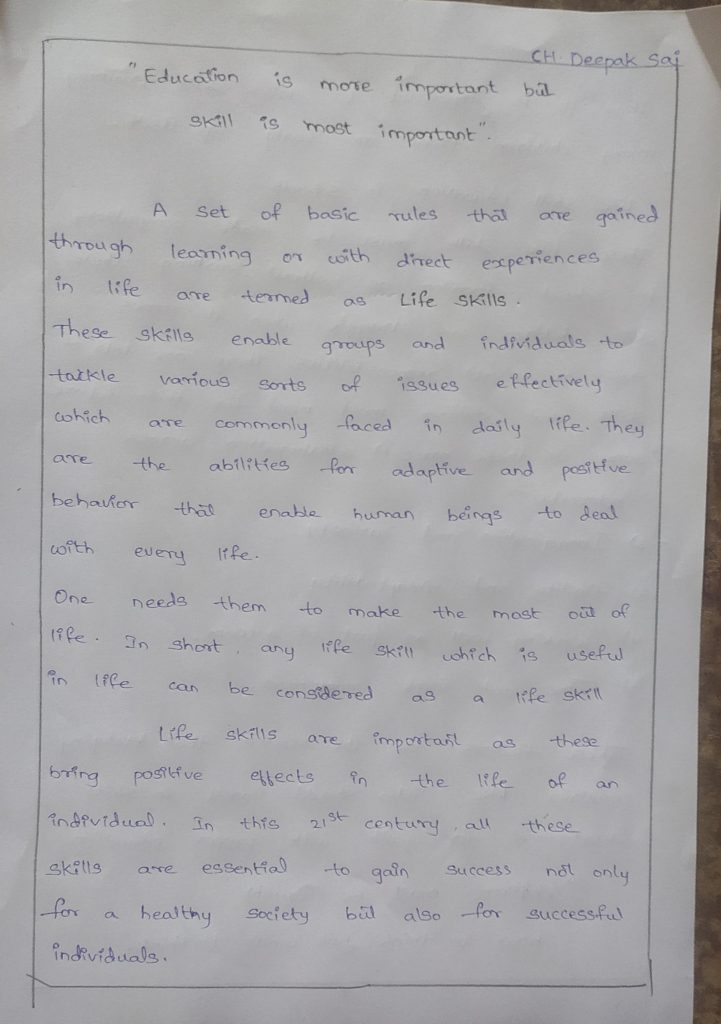 CH. Deepak Sai
"Education is more important but
skill is most important".
A set of basic rules that are gained
through learning or with direct experiences
in life are termed as Life Skills.
These skills enable groups and individuals to
tackle various sorts of issues effectively
which are commonly faced in daily life. They
are the abilities for adaptive and positive
behavior that enable human beings to deal
with every life.
One needs them to make the most out of
life. In short, any life skill which is useful
in life can be considered as a life skill
Life skills are important as these
bring positive effects in the life of an
individual. In this 21st century, all these
skills are essential to gain success not only
for a healthy society but also for successful
individuals.